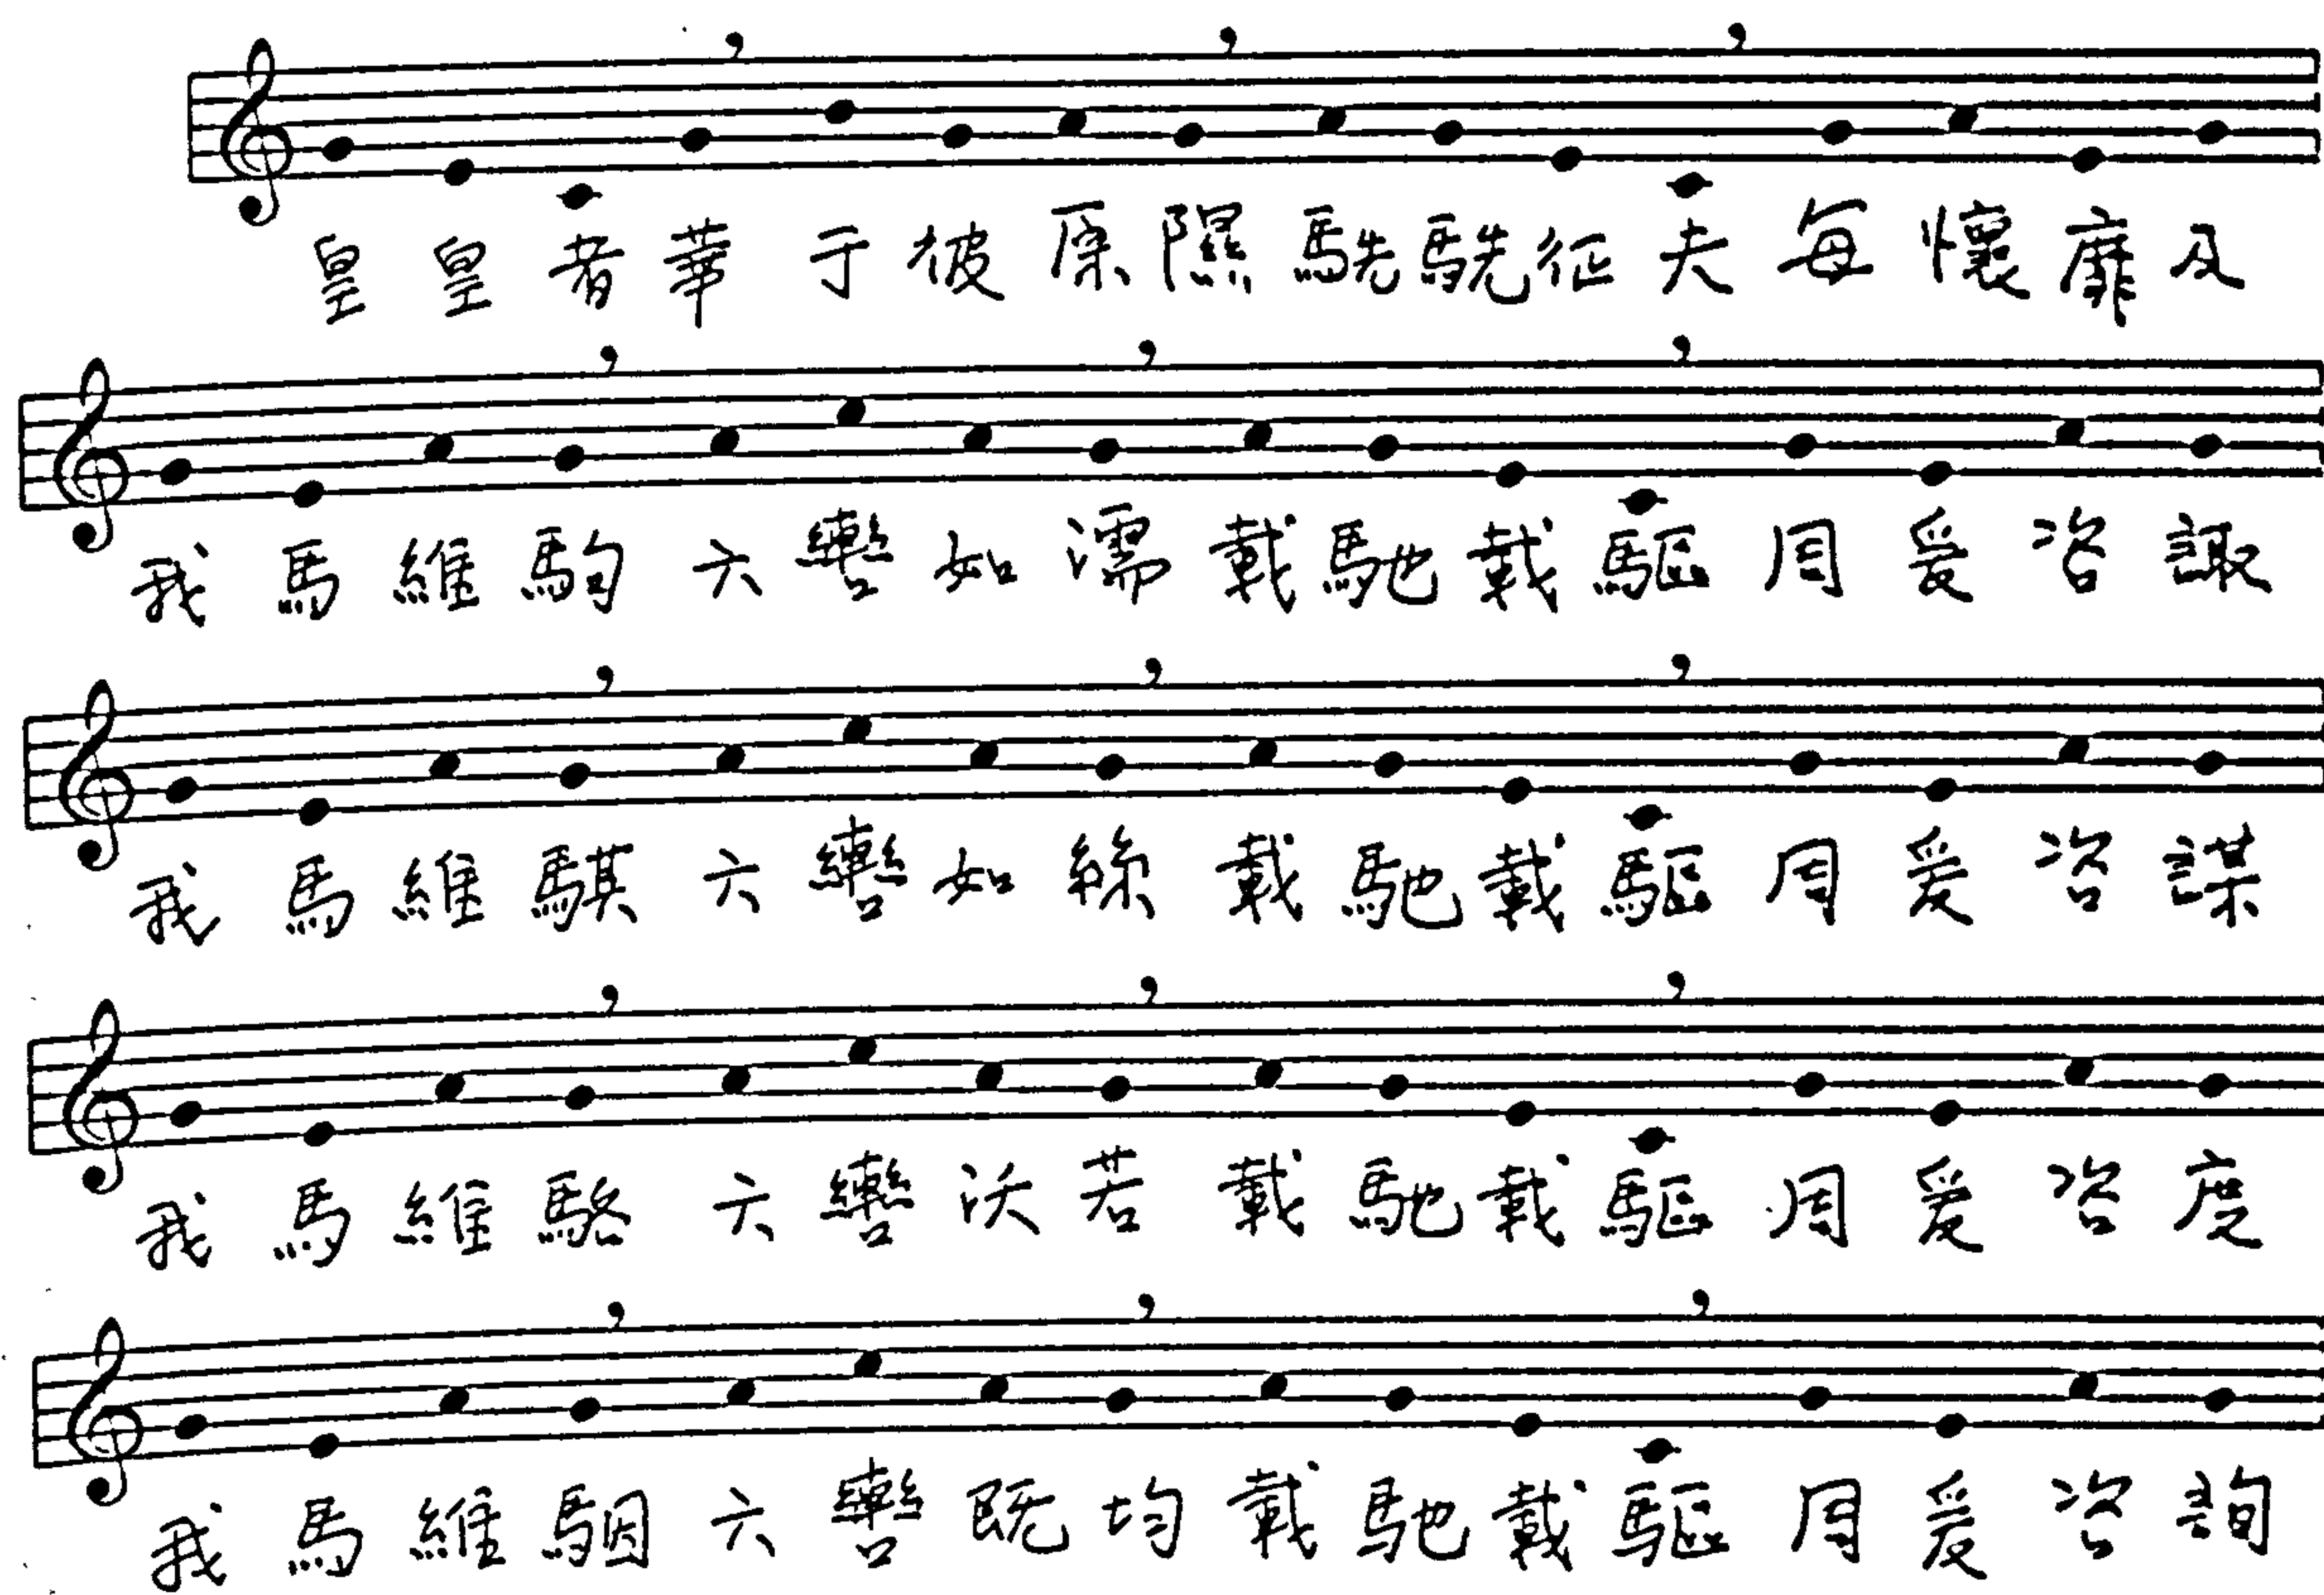 皇皇者華于彼原隰駪駪征夫每懷靡及
我馬維駒六轡如濡載馳載驅周爰咨諏
我馬維騏六轡如絲載馳載驅周爰咨謀
我馬維駱六轡沃若載馳載驅周爰咨度
我馬維駰六轡既均載馳載驅周爰咨詢